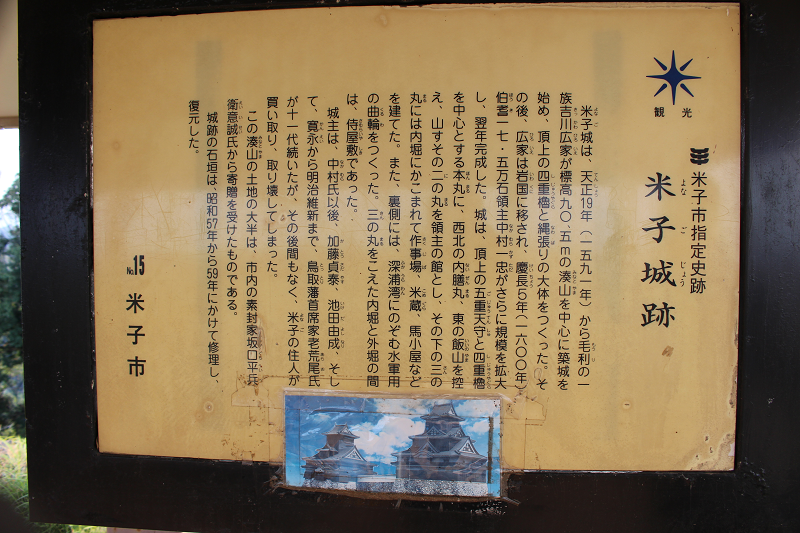 観光
米子市指定史跡
米子城跡
よなごじょう
米子城は、天正19年(一五九一年)から毛利の一
族吉川広家が標高九〇、五mの湊山を中心に築城を
始め、頂上の四重櫓と縄張りの大体をつくった。そ
の後、広家は岩国に移され、慶長5年(一六〇〇年)
伯耆一七・五万石領主中村一忠がさらに規模を拡大
し、翌年完成した。城は、頂上の五重天守と四重櫓
を中心とする本丸に、西北の内膳丸、東の飯山を控
え、山すその二の丸を領主の館とし、その下の三の
丸には内堀にかこまれて作事場、米蔵、馬小屋など
を建てた。また、裏側には、深浦湾にのぞむ水軍用
の曲輪をつくった。三の丸をこえた内堀と外堀の間
は、侍屋敷であった。
城主は、中村氏以後、加藤貞泰、池田由成、そし
て、寛永から明治維新まで、鳥取藩首席家老荒尾氏
が十一代続いたが、その後間もなく、米子の住人が
買い取り、取り壊してしまった。
この湊山の土地の大半は、市内の素封家坂口平兵
衛意誠氏から寄贈を受けたものである。
城跡の石垣は、昭和57年から59年にかけて修理し、
復元した。
No.15 米子市